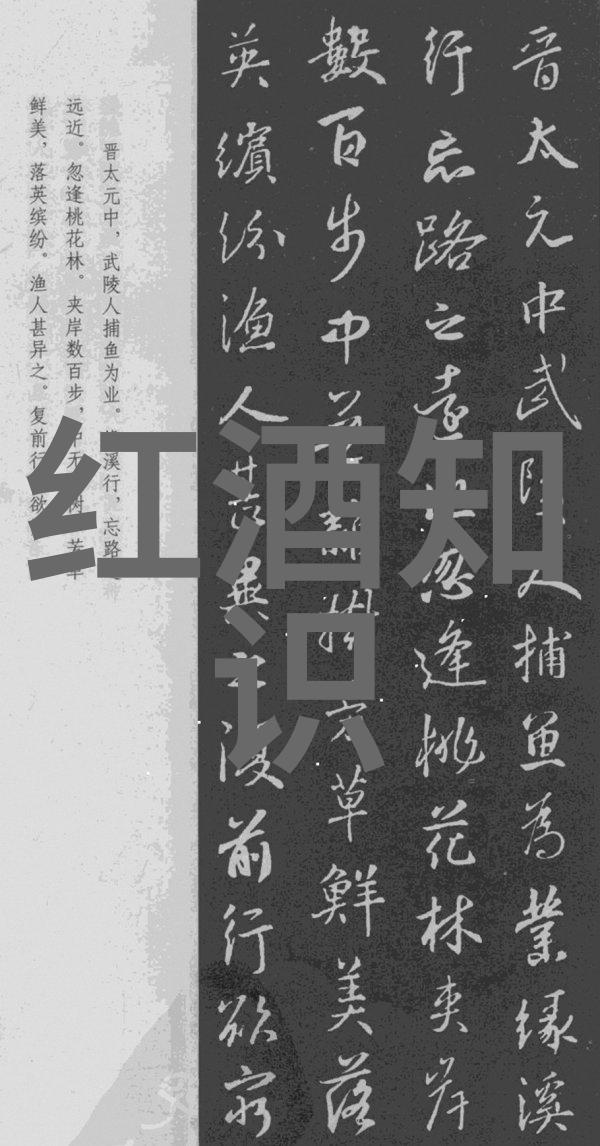 晋太元中武陵人捕鱼为業缘溪
行忘路之遠近忽逢桃花林夾岸
數百步中草鮮美落
英缤纷渔人甚異之復前行欲窮
晋太元中，武陵人捕鱼为业。溪行，忘路
远近。忽逢桃花林。夹岸数百步，中无树
鲜美，落英缤纷。渔人甚异之。复前行，欲
红酒知
识